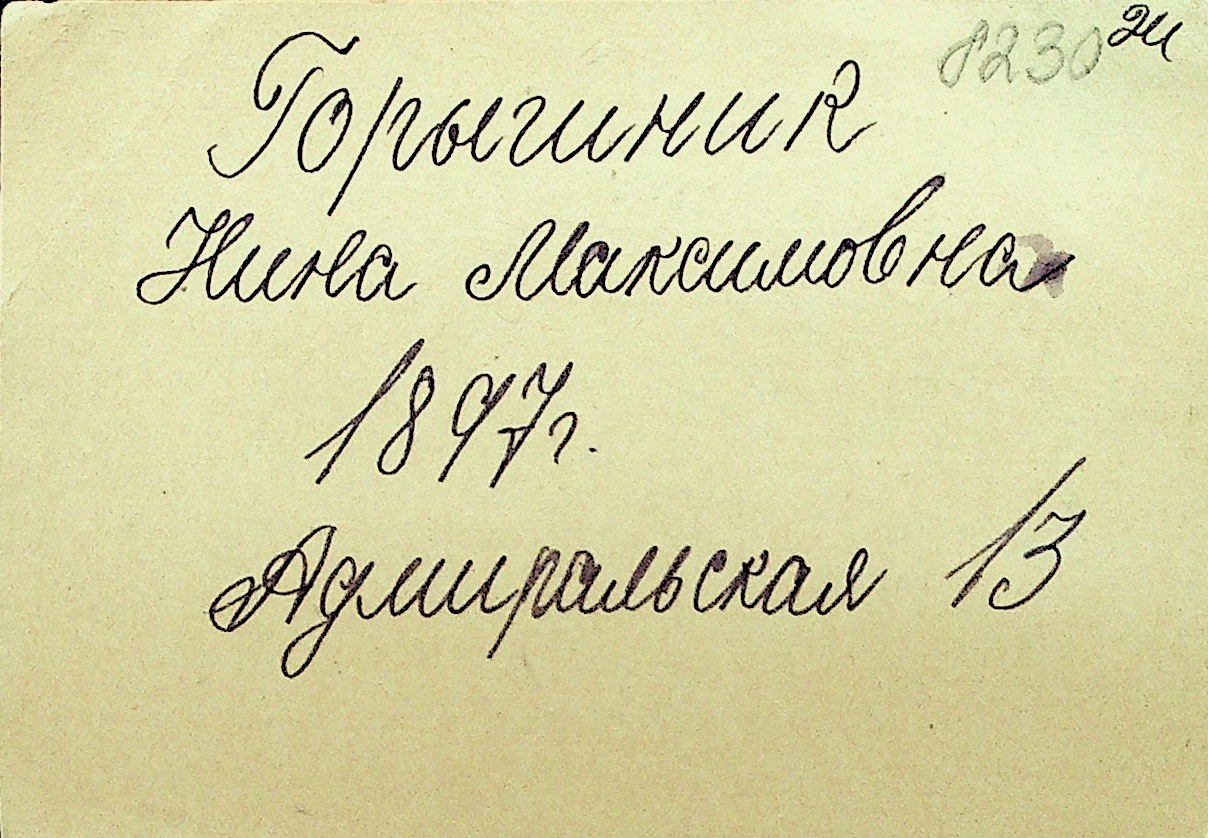 8230 ги
Горышник
Нина Максимовна
1897г.
Адмиральская 13